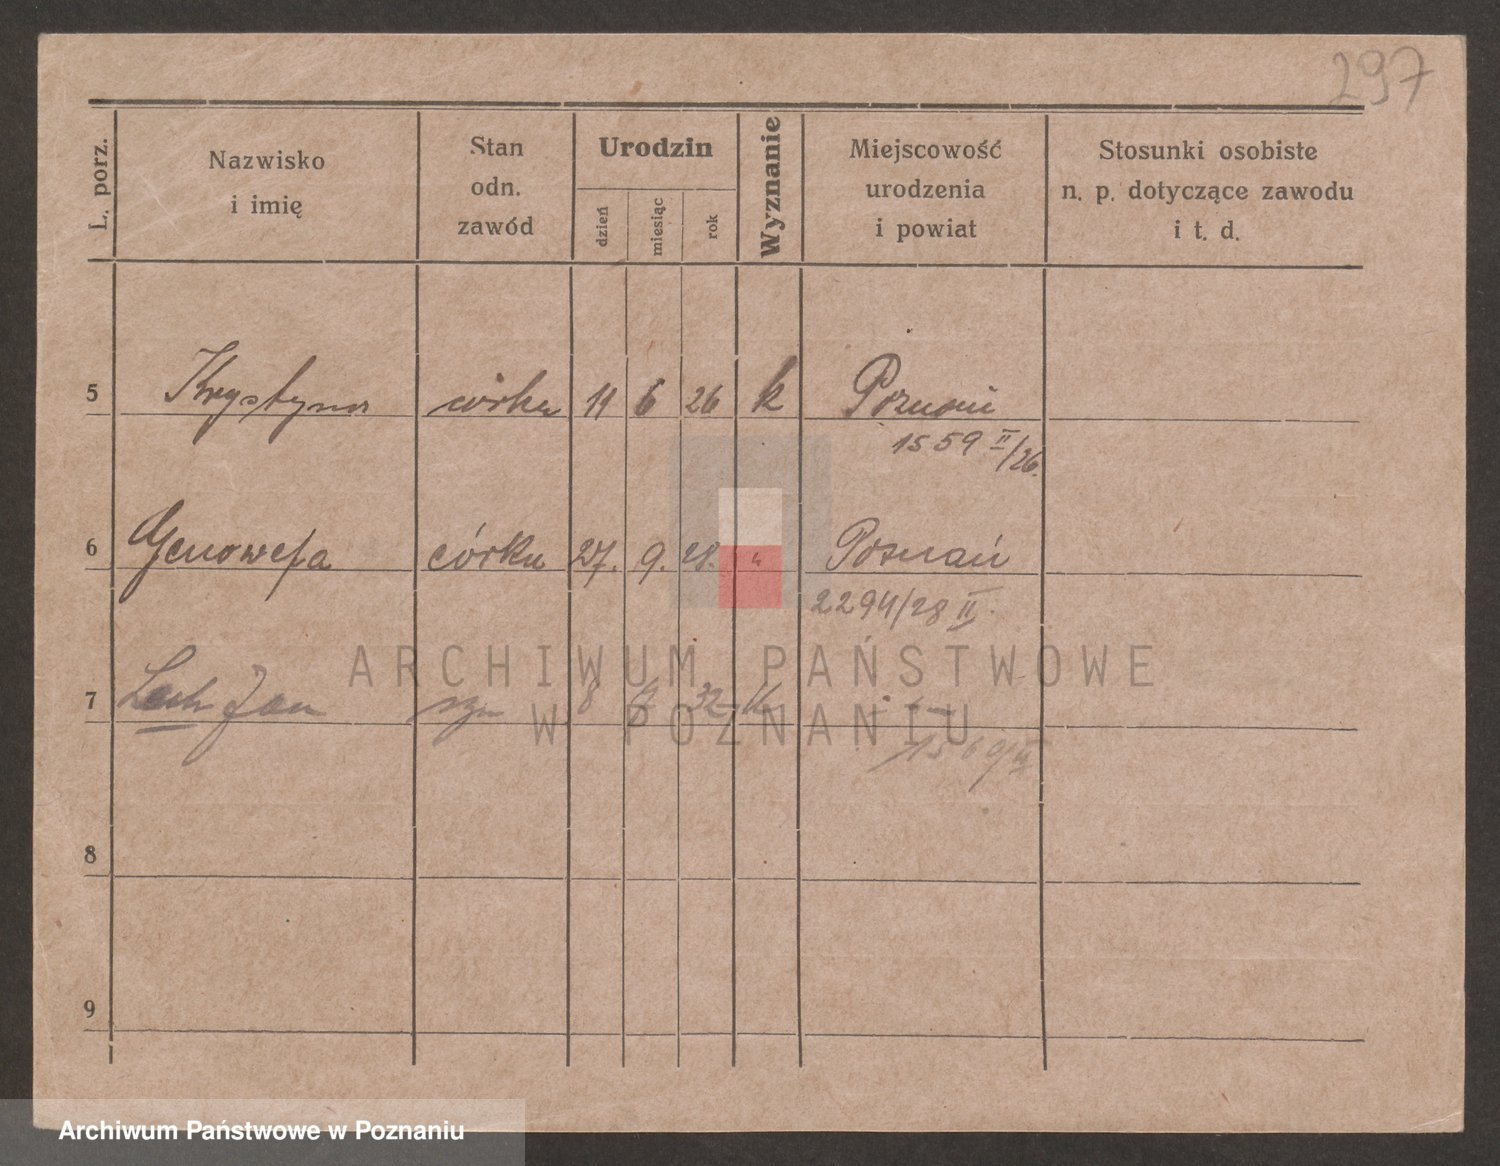 297
L. porz.
Nazwisko
i imię
Stan
odn.
zawód
Urodzin
dzień
miesiąc
rok
Wyznanie
Miejscowość
urodzenia
i powiat
Stosunki osobiste
n. p. dotyczące zawodu
i t. d.
5 Krystyna córka 11 6 26 k Poznań
1559 II/26.
6 Genowefa córka 27. 9. 28. " Poznań
2294/28 II.
7 Lech Jan syn 8 32 k
ARCHIWUM PAŃSTWOWE
W POZNANIU
8
9
Archiwum Państwowe w Poznaniu